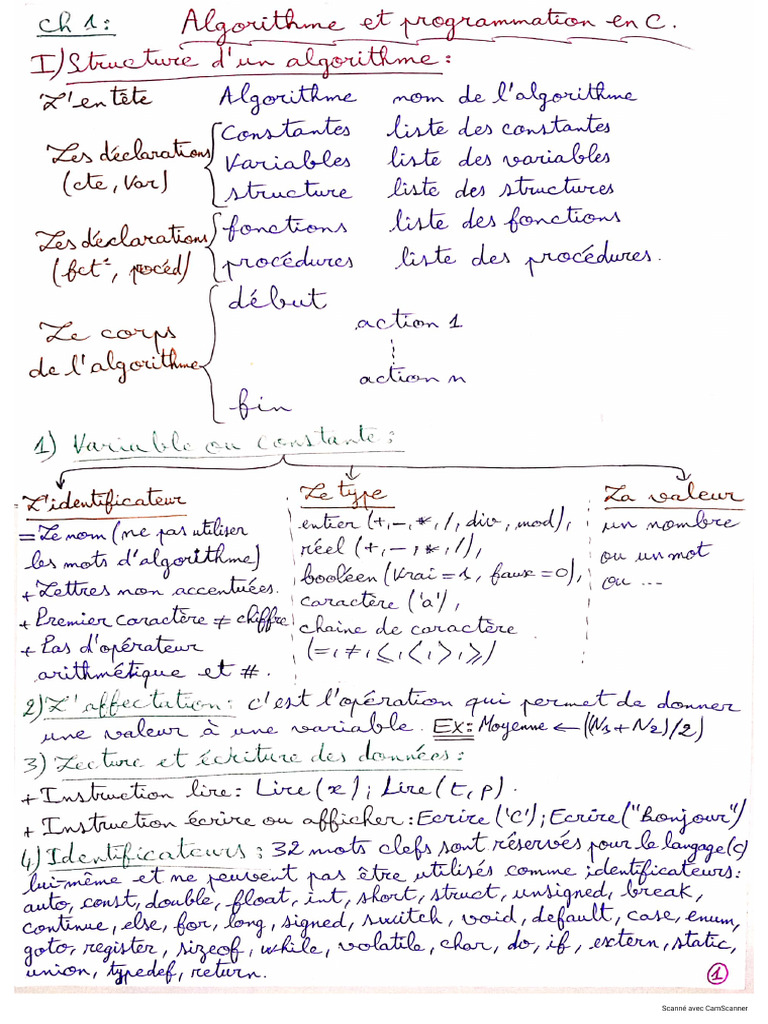 Ch 1: Algorithme et programmation en C.
I) Structure d'un algorithme :
L'entête Algorithme nom de l'algorithme
Les déclarations (cte, Var) Constantes liste des constantes
Variables liste des variables
structure liste des structures
Les déclarations (fct°, pocéd) fonctions liste des fonctions
procédures liste des procédures.
Le corps de l'algorithme début
action 1
action n
fin
1) Variable ou constante :
L'identificateur
= Le nom (ne pas utiliser
les mots d'algorithme)
+ Lettres non accentuées.
+ Premier caractère ≠ chiffre
+ Pas d'opérateur
arithmétique et #.
Le type
entier (+, -, *, /, div, mod),
réel (+, -, *, /),
booléen (Vrai = 1, faux = 0),
caractère ('a'),
chaine de caractère
(=, ≠, ⩽, <, >, ⩾)
La valeur
un nombre
ou un mot
ou ...
2) L'affectation : c'est l'opération qui permet de donner
une valeur à une variable. Ex: Moyenne ← ((N1 + N2)/2)
3) Lecture et écriture des données :
+ Instruction lire : Lire(x) ; Lire(t, p).
+ Instruction écrire ou afficher : Ecrire('C') ; Ecrire("Bonjour")
4) Identificateurs : 32 mots clefs sont réservés pour le langage (c)
lui-même et ne peuvent pas être utilisés comme identificateurs :
auto, const, double, float, int, short, struct, unsigned, break,
continue, else, for, long, signed, switch, void, default, case, enum,
goto, register, sizeof, while, volatile, char, do, if, extern, static,
union, typedef, return.
1
Scanné avec CamScanner